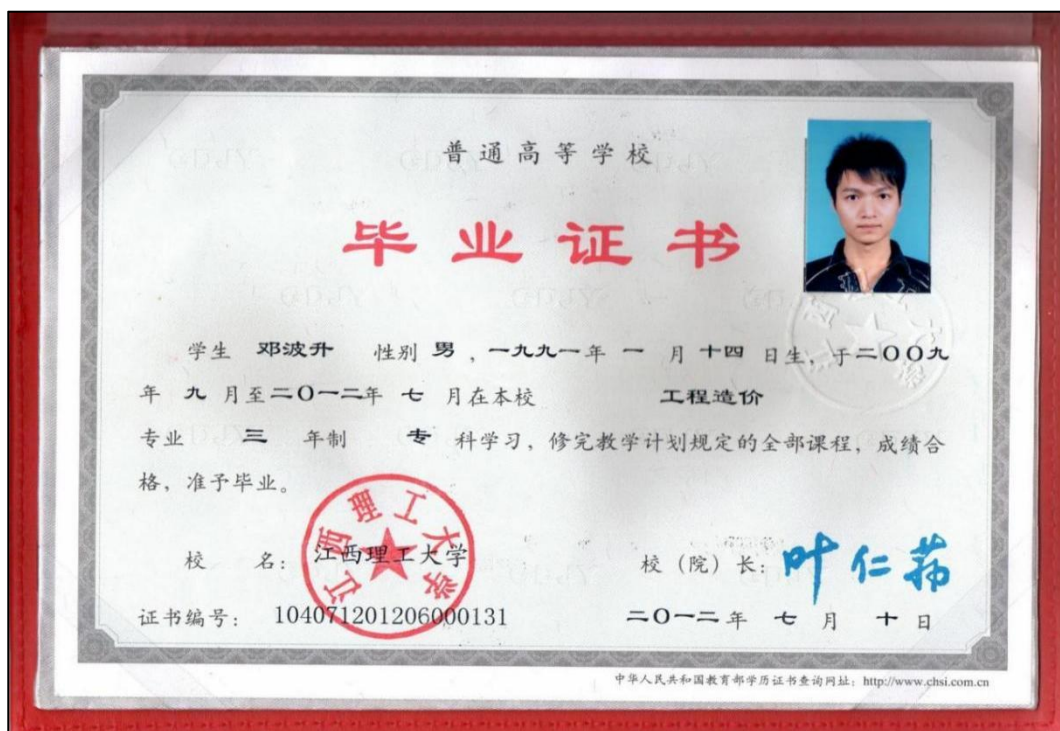 普通高等学校
毕业证书
学生 邓波升 性别 男 ，一九九一年 一 月 十四 日生，于二〇〇九
年 九 月至二〇一二年 七 月在本校 工程造价
专业 三 年制 专 科学习，修完教学计划规定的全部课程，成绩合
格，准予毕业。
江西理工大学
校 名： 江西理工大学
校（院）长：叶仁荪
证书编号： 104071201206000131
二〇一二年 七 月 十 日
中华人民共和国教育部学历证书查询网址：http://www.chsi.com.cn